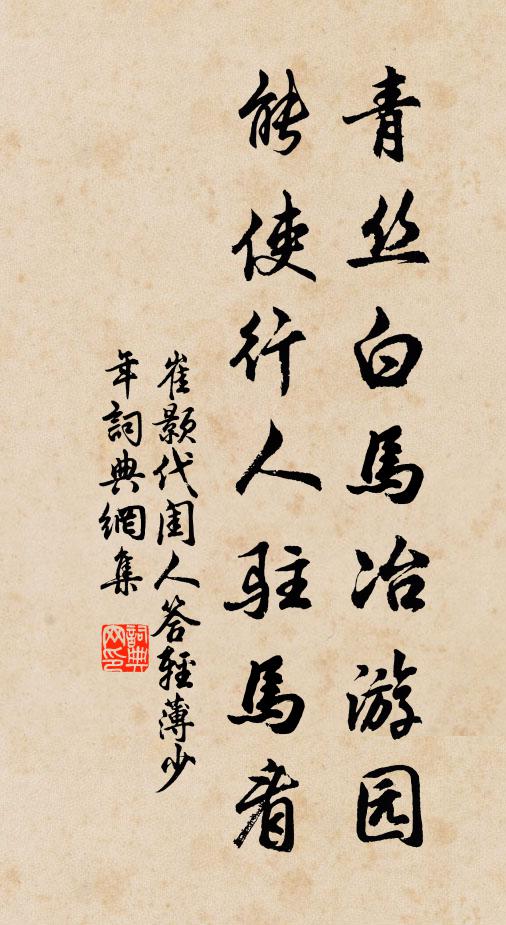 青丝白馬冶游园
能使行人驻馬看
崔颢代闺人答輕薄少
年詞典網集
詞典
网印